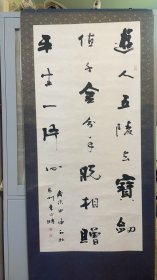 遊人五陵去寶劍
值千金分手脫相贈
平生一片心